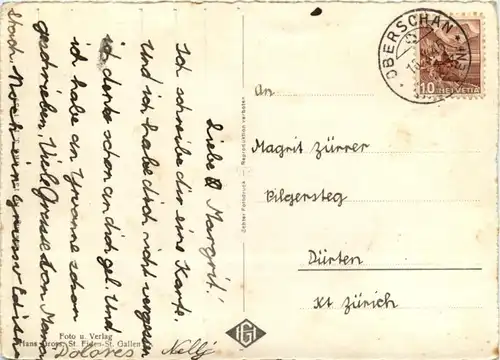 Liebe Margrit!
Ich schreibe dir eine Karte.
Und ich habe dich nicht vergessen
ich denke schon an dich gel. Und
ich habe an Yvonne schon
geschrieben. Viele Grüsse von
Noch ein gruss v.
Dolores Nelly
Foto u. Verlag
Hans Gross, St. Fiden-St. Gallen
Echter Fotodruck — Reproduktion verboten
HG
OBERSCHAN
10 HELVETIA
An
Magrit Zürrer
Pilgersteg
Dürten
Kt Zürich